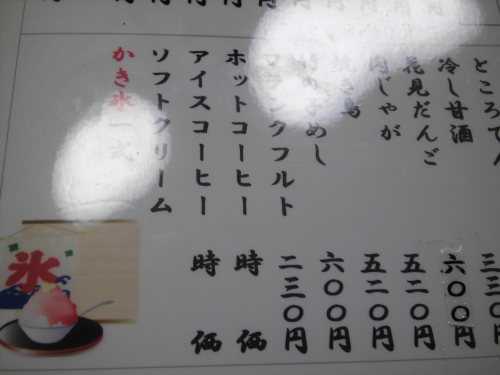 ところてん
冷し甘酒 三三〇円
花見だんご 六〇〇円
肉じゃが 五二〇円
焼き鳥 五二〇円
めし 六〇〇円
フランクフルト 二三〇円
ホットコーヒー 時価
アイスコーヒー 時価
ソフトクリーム
かき氷一式
氷